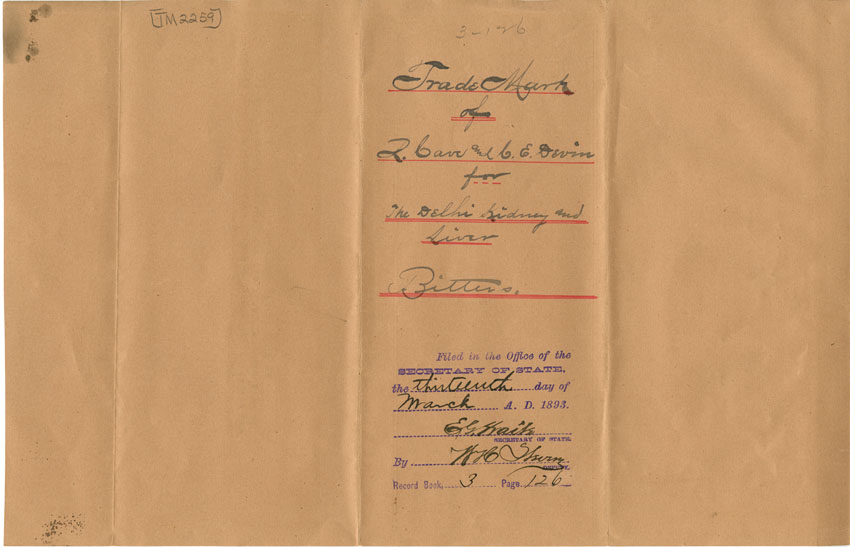 [TM2259]
3-126
Trade Mark
of
Cave and C. E. Devin
for
The Delhi Kidney and
Liver
Bitters.
Filed in the Office of the
SECRETARY OF STATE,
the thirteenth day of
March A. D. 1893.
E. G. Waite
SECRETARY OF STATE.
By W H
DEPUTY.
Record Book, 3 Page, 126